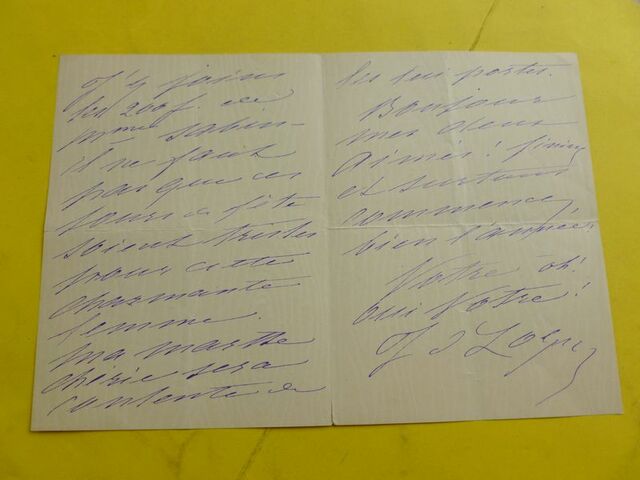 J'y joins
les 200 f. de
Mme
il ne faut
pas que ces
jours de fête
soient tristes
pour cette
charmante
femme.
Ma Marthe
chérie sera
contente de
les lui porter.
Bonjour
mes deux
Aimés! finissez
et surtout
commencez
bien l'année,
Votre oh!
oui Votre!